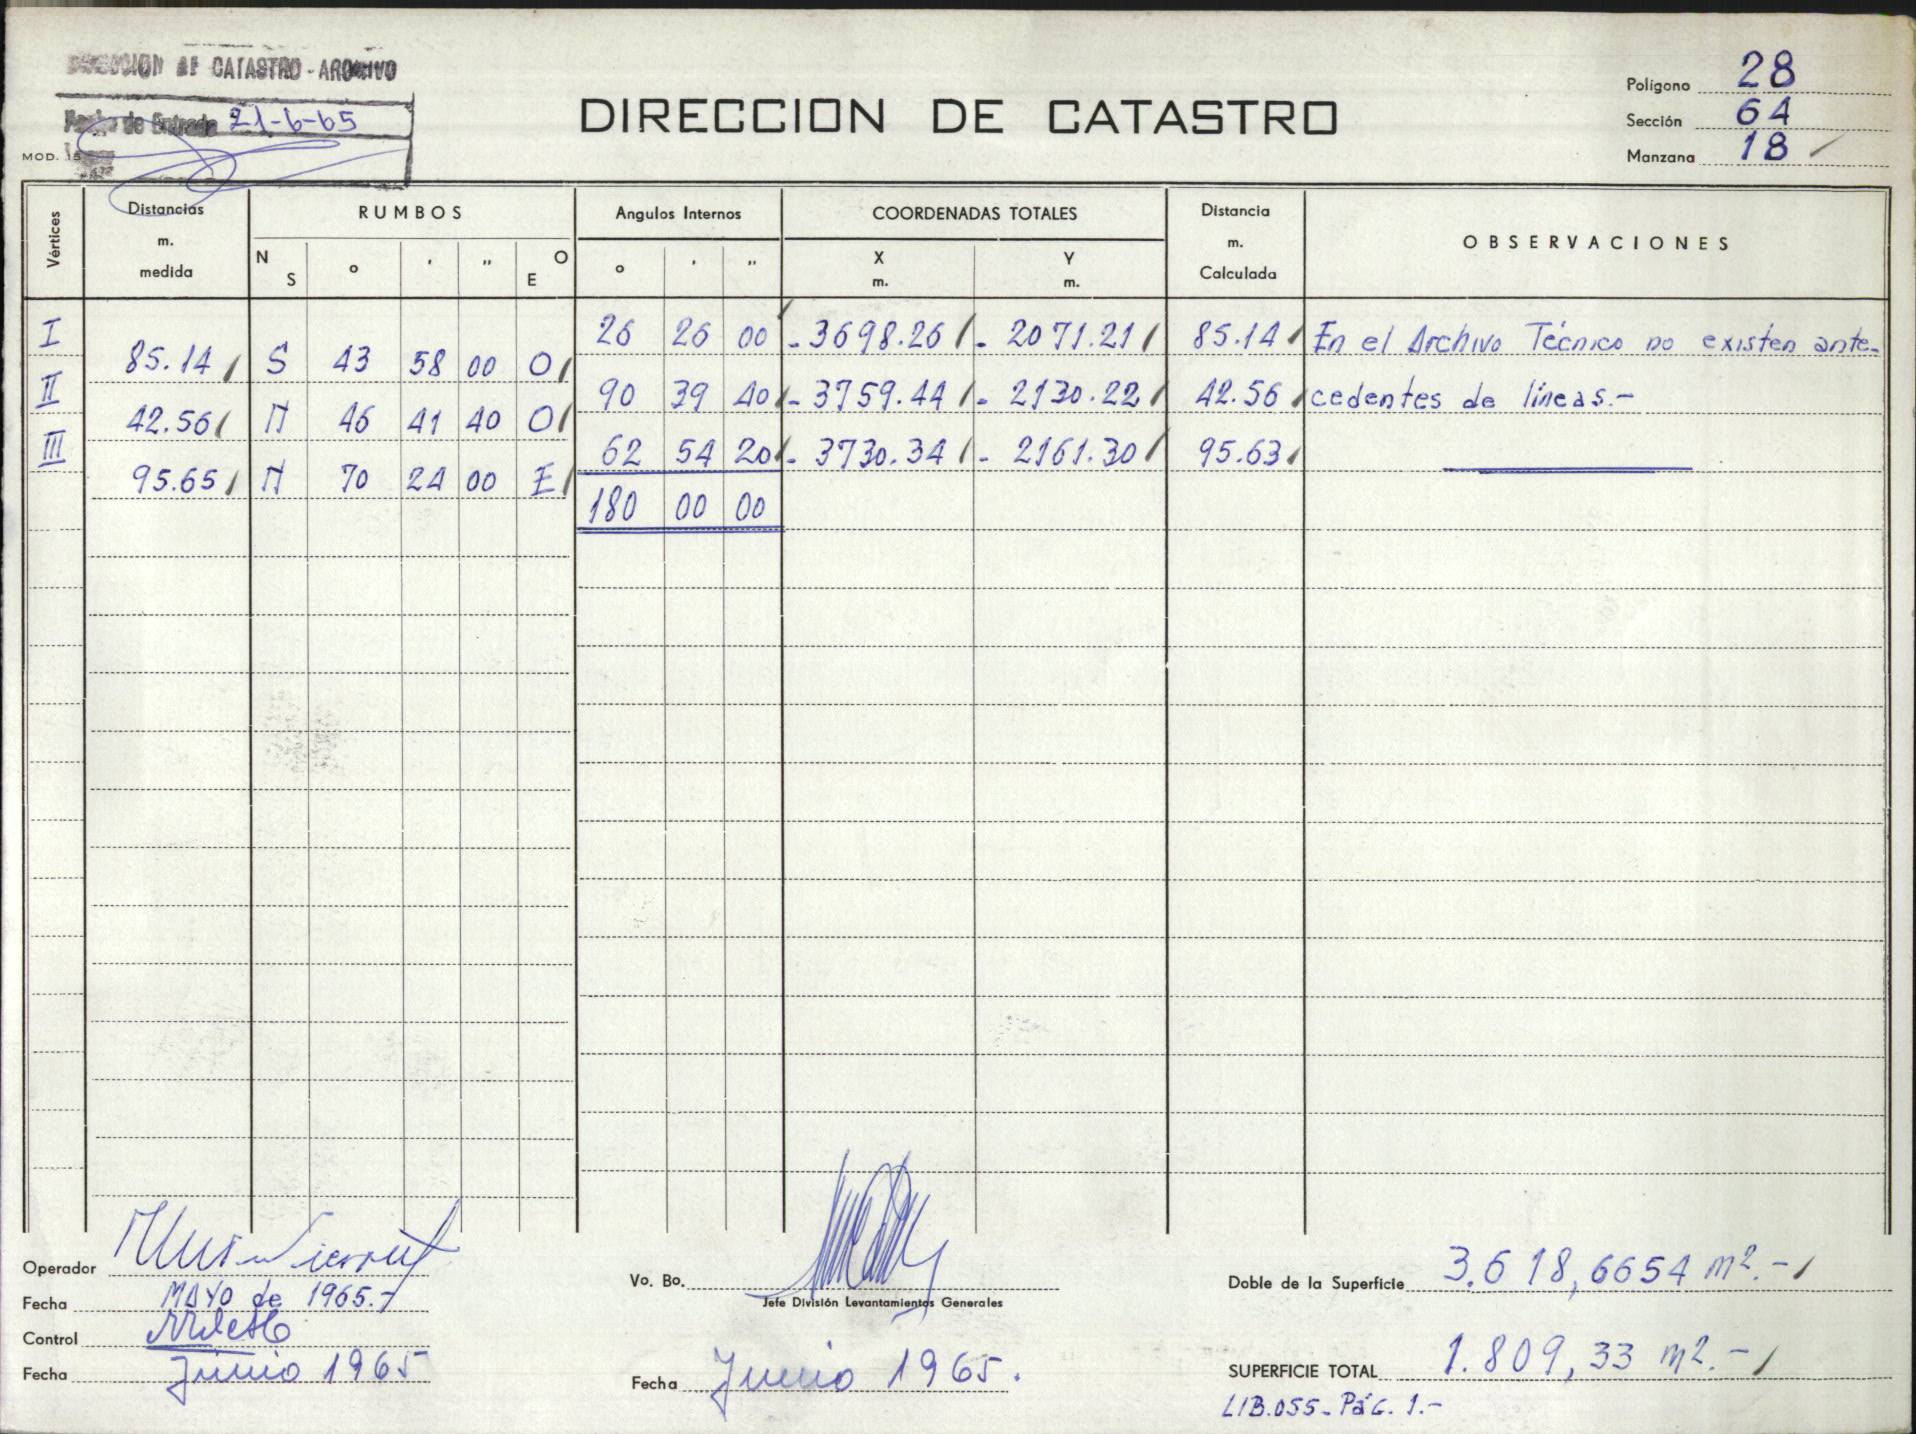 DIRECCION DE CATASTRO - ARCHIVO
Fecha de Entrada 21-6-65
MOD. 15
DIRECCION DE CATASTRO
Polígono 28
Sección 64
Manzana 18
Vértices Distancias m. medida RUMBOS Angulos Internos COORDENADAS TOTALES Distancia m. Calculada OBSERVACIONES
N S ° ' " O E ° ' " X m. Y m.
I 26 26 00 -3698.26 -2071.21 85.14 En el Archivo Técnico no existen ante-
85.14 S 43 58 00 O
II 90 39 40 -3759.44 -2130.22 42.56 cedentes de líneas.-
42.56 N 46 41 40 O
III 62 54 20 -3730.34 -2161.30 95.63
95.65 N 70 24 00 E
180 00 00
Operador
Fecha MAYO de 1965.-
Control
Fecha Junio 1965
Vo. Bo.
Jefe División Levantamientos Generales
Fecha Junio 1965.
Doble de la Superficie 3.618,6654 m2.-
SUPERFICIE TOTAL 1.809,33 m2.-
LIB.055-Pág. 1.-